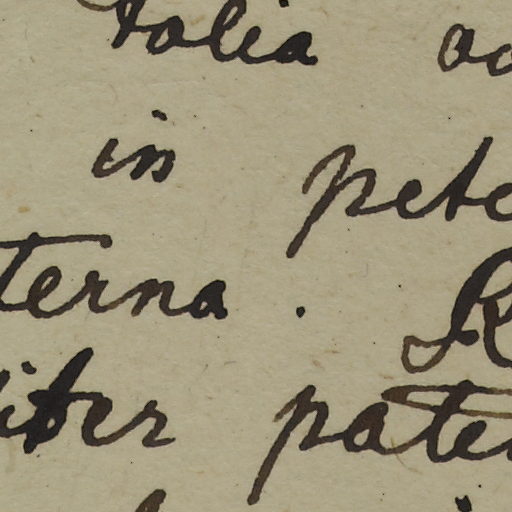 talia
in pete
terna. R
iter pate